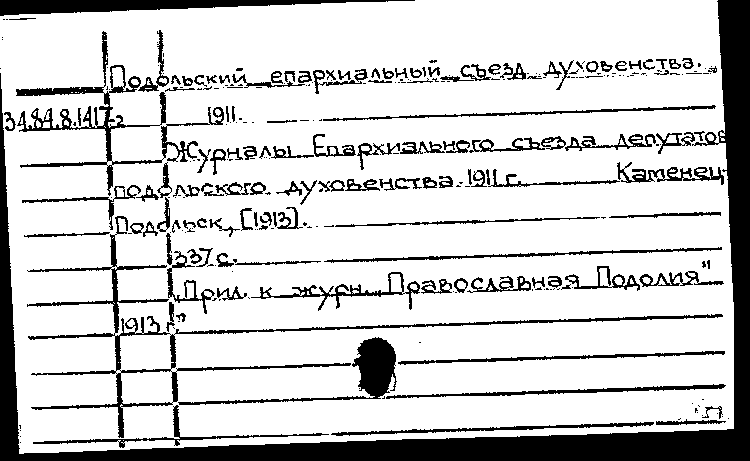 Подольский епархиальный съезд духовенства.
34.84.8.1417-2 1911.
Журналы Епархиального съезда депутатов
подольского духовенства. 1911 г. Каменец-
Подольск, [1913].
337 с.
„Прил. к журн. „Православная Подолия"
1913 г."